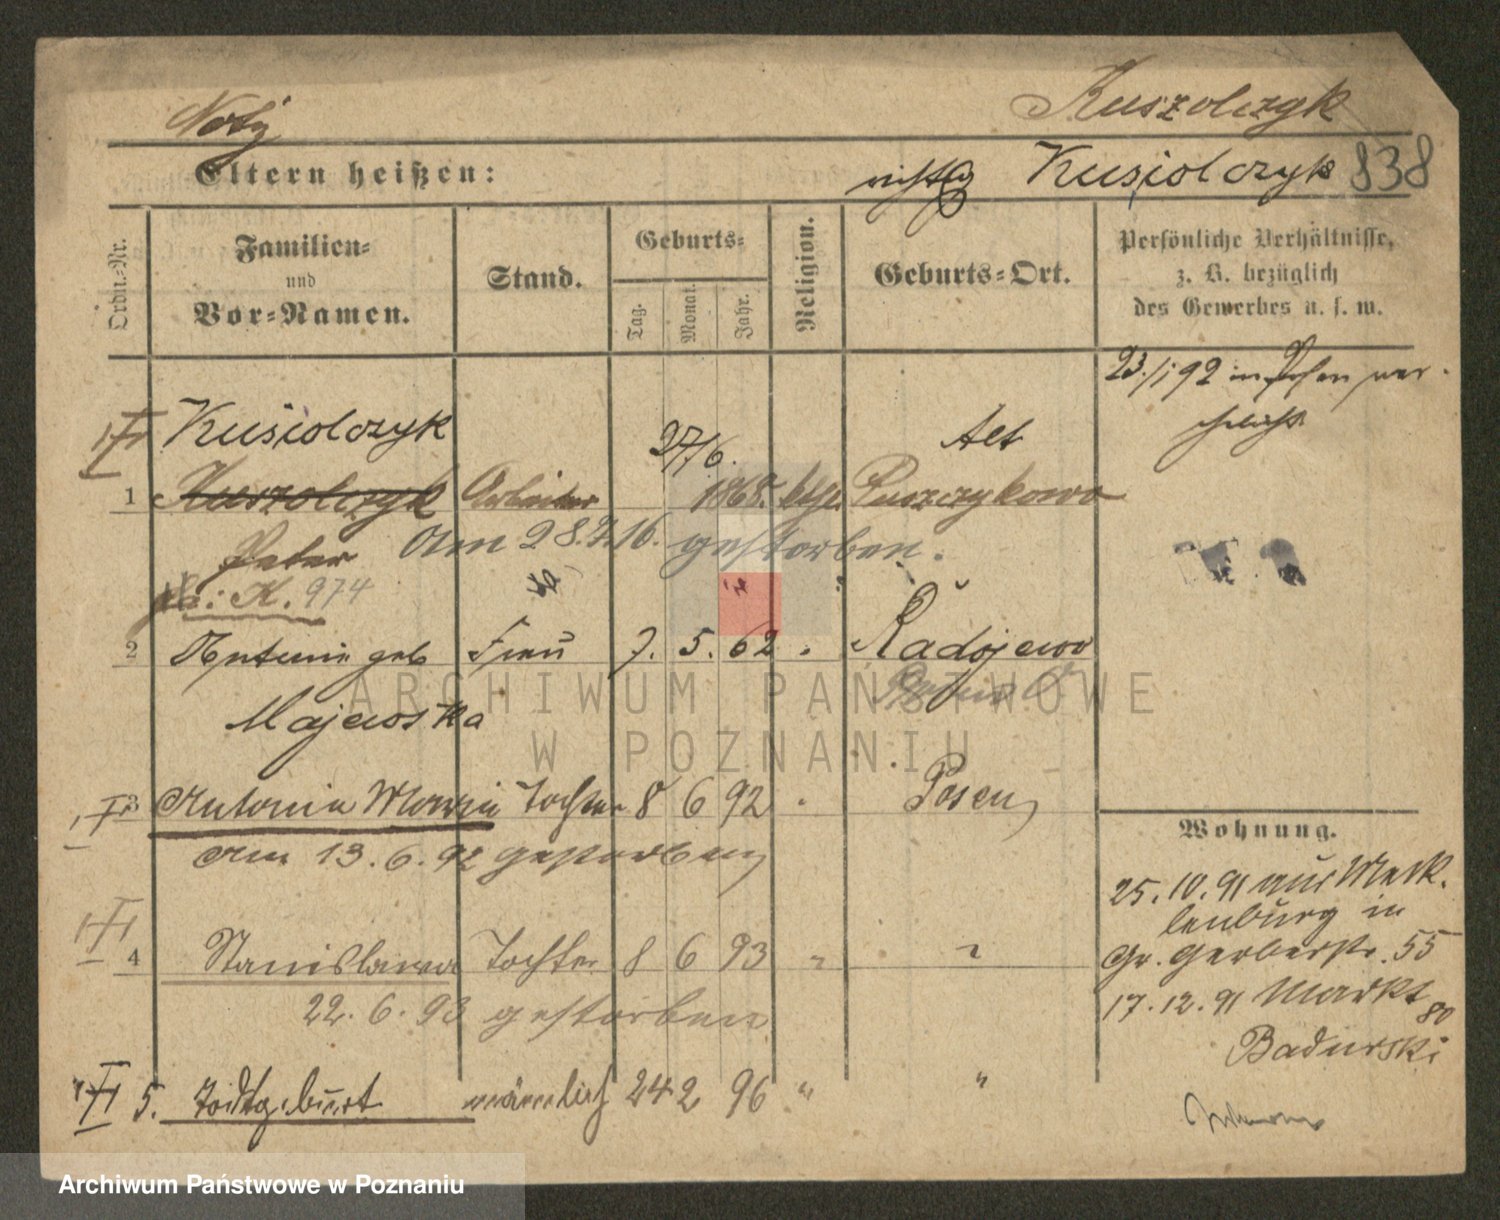 Notiz Kuszolczyk
Eltern heißen: richtig Kusiolczyk 838
Ordn.-Nr.
Familien-
und
Vor-Namen.
Stand.
Geburts-
Tag. Monat. Jahr.
Religion.
Geburts-Ort.
Persönliche Verhältnisse,
z. B. bezüglich
des Gewerbes u. s. w.
23./1 92 in Posen ver-
ehelicht
Kusiolczyk 27/6. Alt
1 Kuszolczyk Arbeiter 1868. kath. Puszczykowo
Peter Am 28.7.16. gestorben.
K. 974
2 Antonie geb Frau 7. 5. 62 " Radojewo
Majewska
3 Antonia Maria Tochter 8 6 92 " Posen
Am 13.6.92 gestorben
4 Stanislawa Tochter 8 6 93 " "
22.6.93 gestorben
5. Todtgeburt männlich 24 2 96 " "
Wohnung.
25.10.91 aus Meck-
lenburg in
Gr. Gerberstr. 55
17.12.91 Markt 80
Badurski
ARCHIWUM PAŃSTWOWE
W POZNANIU
Archiwum Państwowe w Poznaniu